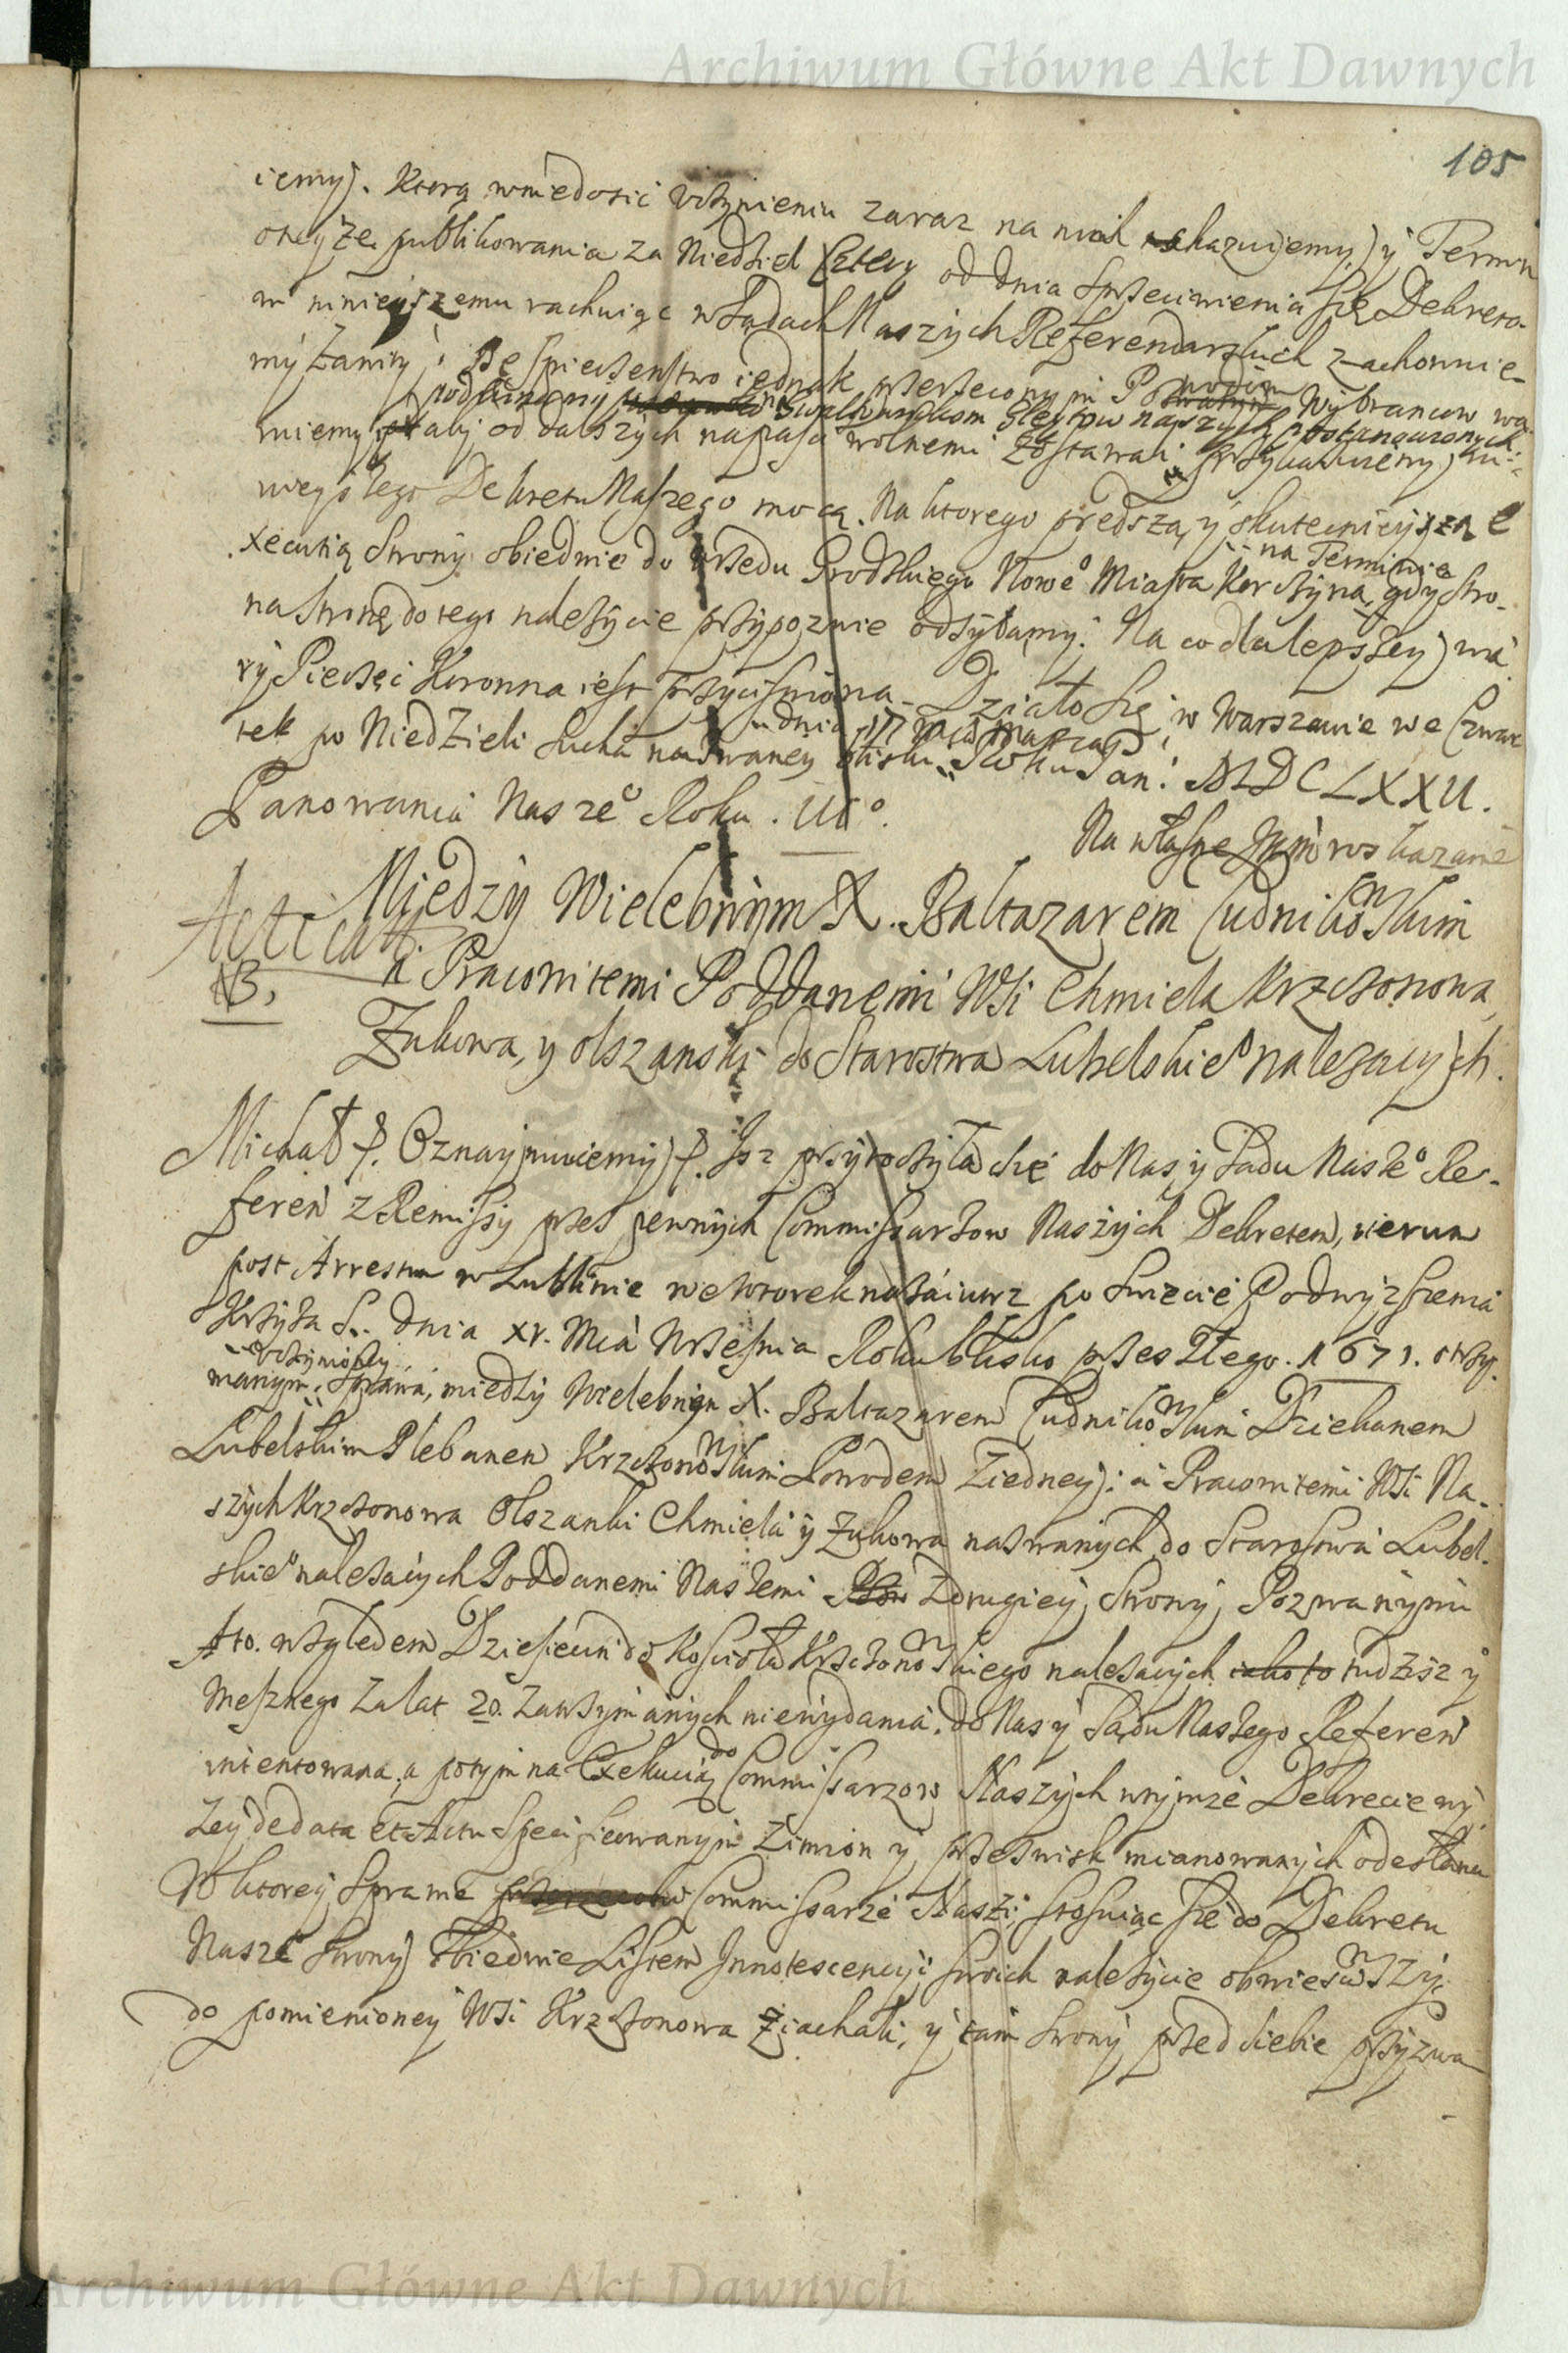 Archiwum Główne Akt Dawnych
105
iemy. Ktorą wniedosić uczynieniu zaraz na nich skazuiemy, y Termin
oneyże publikowania za Niedziel Cztery od dnia sprzeciwienia się Dekreto-
w ninieyszemu rachuiąc w Sądach Naszych Referendarskich zachowuie-
my zawity. Bespieczenstwo iednak przerzeczonym Powodom Wybrancom wa-
pod winami na Gwałtownikom Gleytow naszych postanowionych
ruiemy aby od dalszych napaści wolnemi zostawali przykazuiemy, ni-
nieyszego Dekretu Naszego mocą. Na ktorego prędszą y skutecznieyszą E-
xecutią Strony obiedwie do Urzędu Grodzkiego Nowego Miasta Korczyna, gdy stro-
na Terminie
na stronę do tego należycie przypozwie odsyłamy. Na co dla lepszey wia-
ry Pieczęć Koronna iest przyciśniona. Działo się w Warszawie we Czwar-
u dnia 17 mca Marca
tek po Niedzieli Sucha nazwaney blisko Roku Pań. MDCLXXII.
Panowania Naszeo Roku. IIIo.
Na własne Jego Kr Mci roskazanie
Acticatt.
Między Wielebnym X. Baltazarem Cudnikowskim
NB,
A Pracowitemi Poddanemi Wsi Chmiela Krzczonowa,
Zukowa, y Olszanki do Starostwa Lubelskieo nalezących.
Michał p. Oznaymuiemy p. Isz przytoczyła się do Nas y Sądu Naszeo Re-
feren z Remissy przez pewnych Commissarzow Naszych Dekretem, iterum
post Arrestum w Lublinie we Wtorek nazaiutrz po Swięcie Podwyzszenia
Krzyża S. dnia xv. Mca Września Roku blisko przeszłego. 1671. otrzy-
uczynioney
manym, Sprawa, między Wielebnym X. Baltazarem Cudnikowskim Dziekanem
Lubelskim Plebanem Krzczonowskim Powodem Ziedney: a Pracowitemi Wsi Na-
szych Krzczonowa Olszanki Chmiela y Zukowa nazwanych do Starostwa Lubel-
skieo należących Poddanemi Naszemi Zdrugiey Strony Pozwanymi
A to. względem Dziesięcin do Kościoła Krzczonowskiego należących iako to tudzisz y
Mesznego za lat 20. zatrzymanych niewydania. do Nas y Sądu Naszego Referen
intentowana, a potym na Exekucią do Commissarzow Naszych wtymże Dekrecie wy
zey de data et Actu Specifikowanym z imion y przezwisk mianowanych odesłana
W ktorey Sprawie Commissarze Naszi, stosuiąc się do Dekretu
Naszeo Strony Obiedwie Listem Innotescencyi swoich należycie obwieściwszy
do pomienioney Wsi Krzczonowa ziachali, y tam Strony przed siebie przyzwa
Archiwum Główne Akt Dawnych